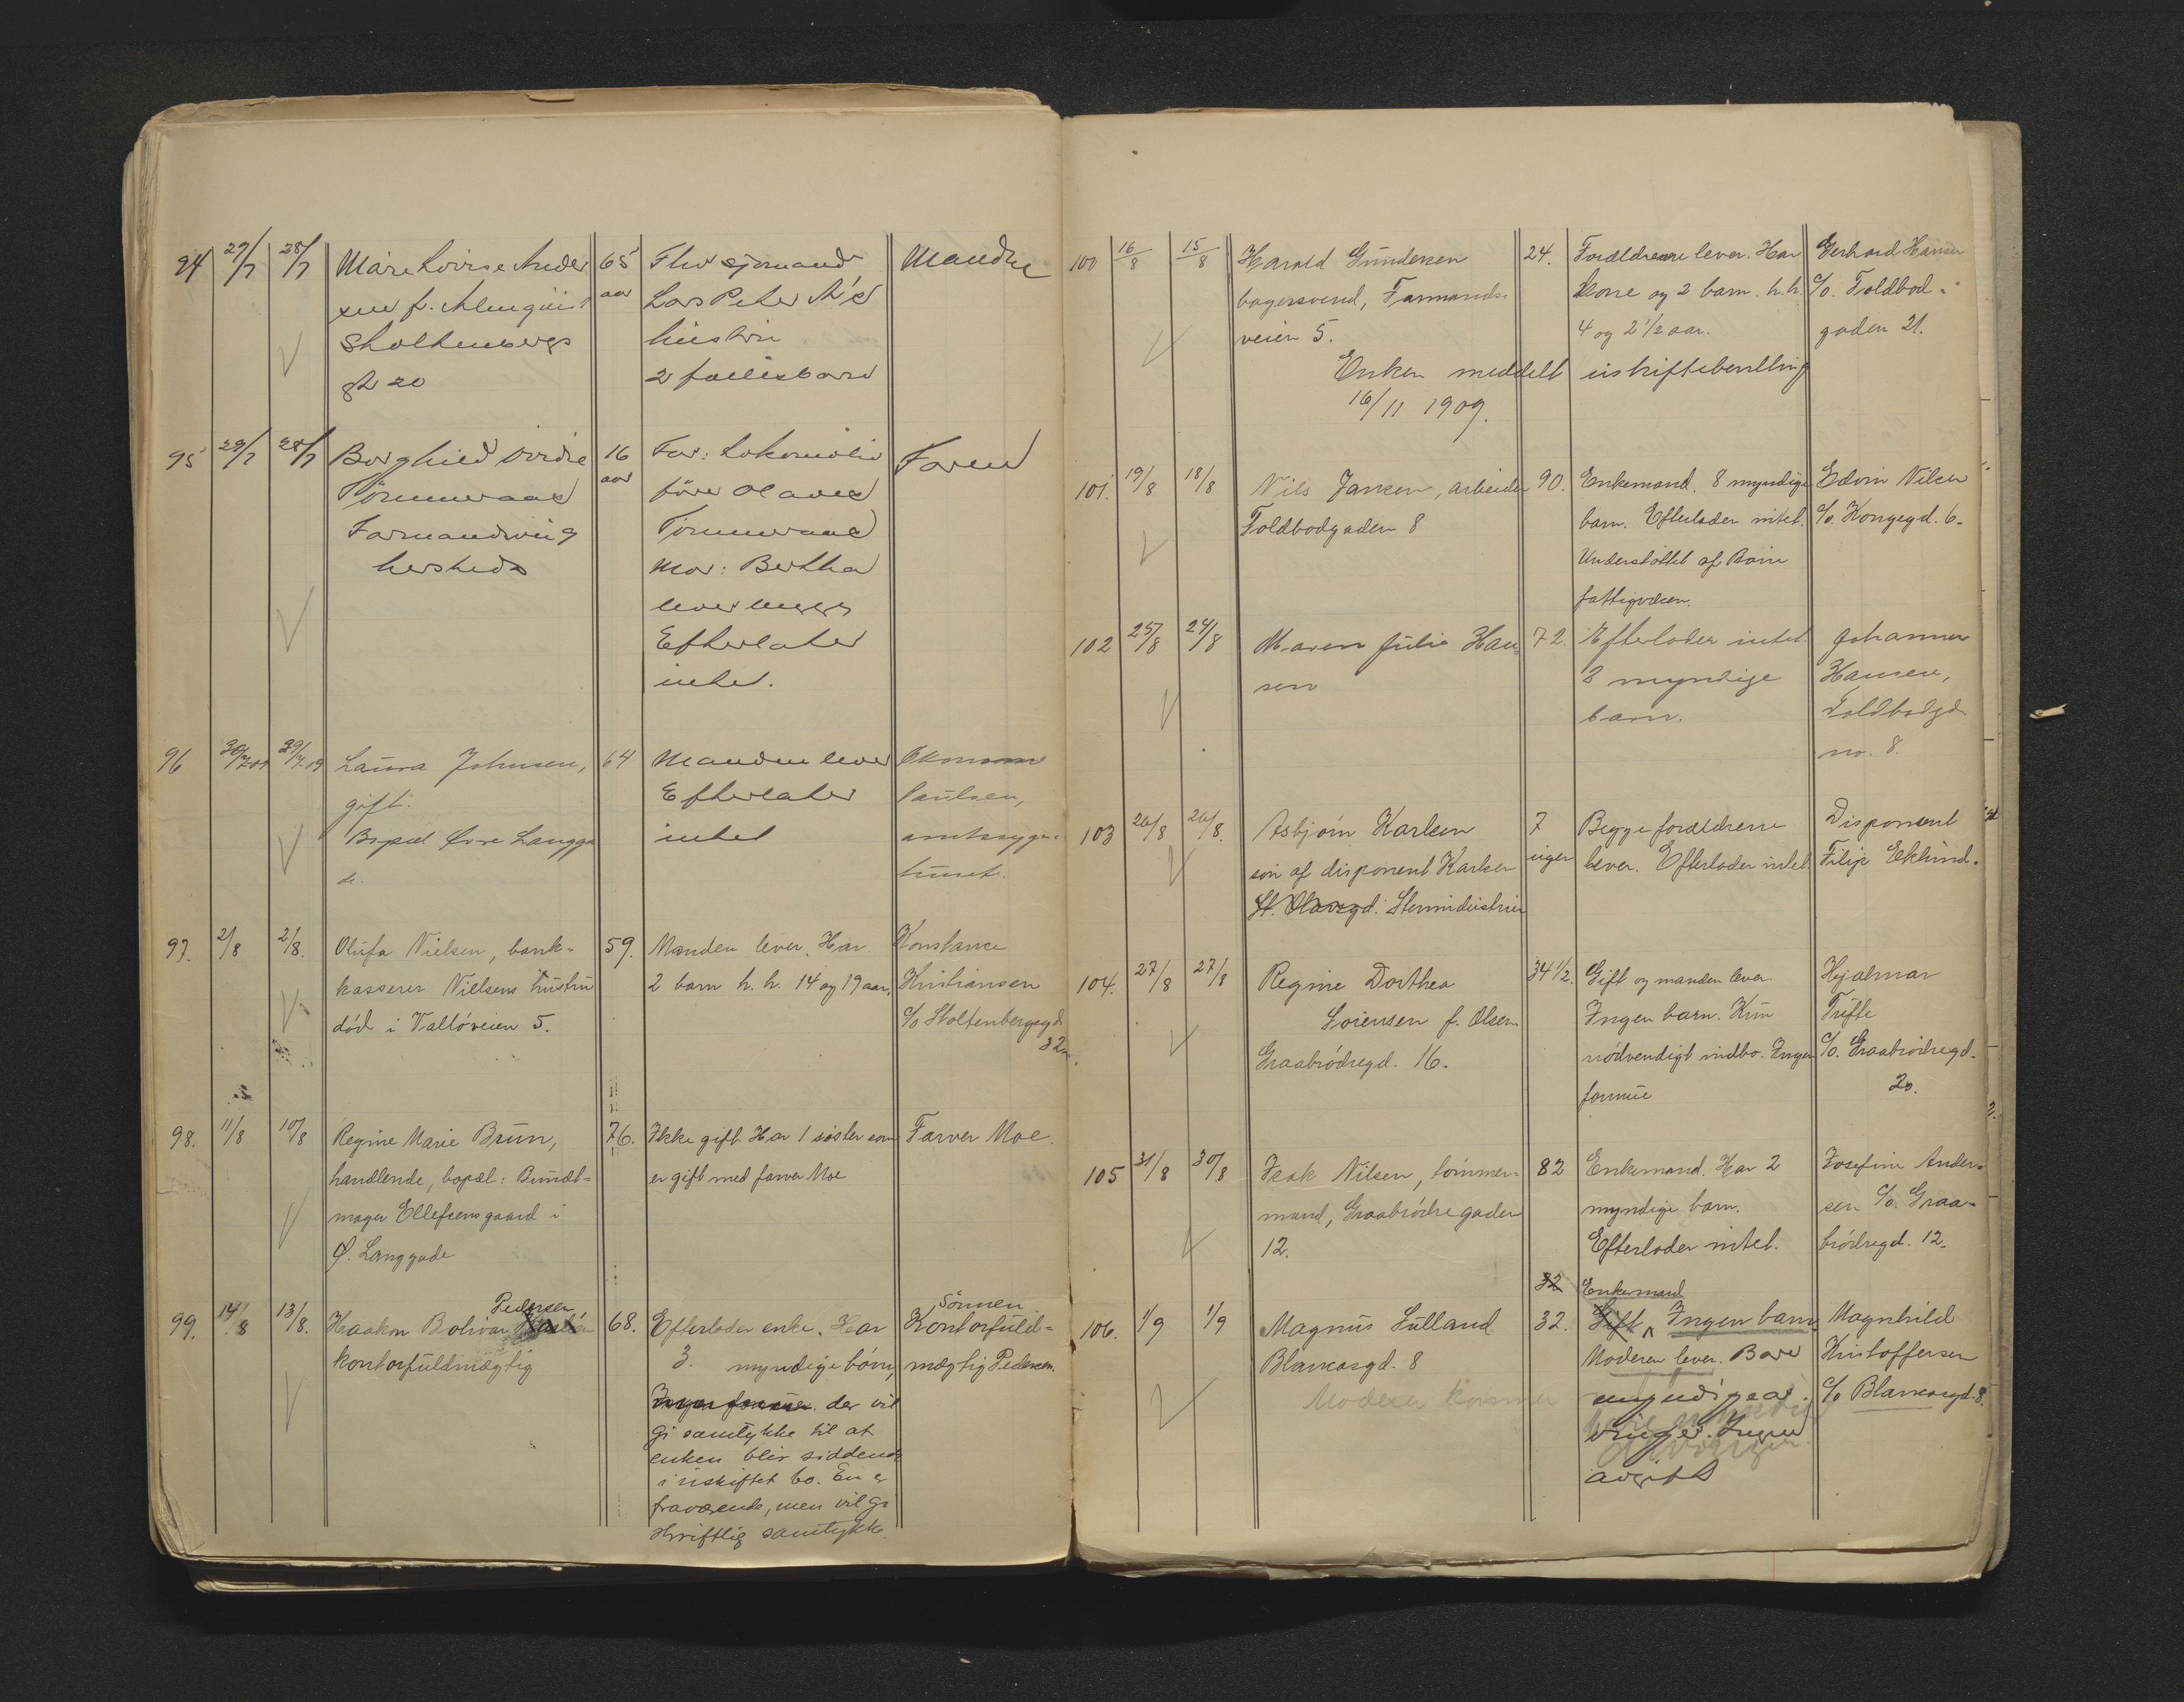 94 29/7 28/7 Marie Lovise Ander 65 Fhv sjømand Manden
sen f. Almquist aar Lars Peter A's
Stoltenbergs hustru
gt 20 2 fællesbarn
95 29/7 28/7 Borghild Værdie 16 Far: Lokomotiv Faren
Tømmeraas aar fører Olaves
Farmandsvei 9 Tømmeraas
hersteds Mor: Bertha
lever begge
Efterlater
intet.
96 30/7-09 29/7-09 Laura Johnsen, 64 Manden lever Økonom
gift. Efterlater Paulsen,
Bopæl Øvre Langga intet amtssyge-
de. huset.
97. 2/8 2/8. Olufa Nielsen, bank- 59. Manden lever. Har Konstance
kasserer Nielsens hustru 2 barn h. h. 14 og 19 aar. Kristiansen
død i Valløveien 5. c/o Stoltenbergsgd
32.
98. 11/8 10/8 Regine Marie Brun, 76. Ikke gift. Har 1 søster som Farver Moe.
handlende, bopæl: Bundt- er gift med farver Moe
mager Ellefsens gaard i
Ø. Langgade
Pedersen Sønnen
99. 14/8 13/8. Haakon Bolivar 68. Efterlader enke. Har Kontorfuld-
kontorfuldmægtig 3 myndige børn, mægtig Pedersen.
Ingen formue. der vil
gi samtykke til at
enken blir siddende
i uskiftet bo. En er
fraværende, men vil gi
skriftlig samtykke.
100 16/8 15/8 Harald Gundersen 24. Forældrene lever. Har Gerhard Hansen
bagersvend, Farmands- kone og 2 barn. h.h. c/o. Toldbod-
veien 5. 4 og 2 1/2 aar. gaden 21.
Enken meddelt uskiftebevilling
16/11 1909.
101. 19/8 18/8 Nils Jansen, arbeider 90. Enkemand. 8 myndige Edvin Nilsen
Toldbodgaden 8 barn. Efterlader intet. c/o. Kongegd. 6.
Understøttet af Borre
fattigvæsen.
102 25/8 24/8 Maren Julie Han- 72. Efterlader intet Johannes
sen 3 myndige Hansen,
barn. Toldbodgd
no. 8.
103 26/8 26/8. Asbjørn Karlsen 7 Begge forældrene Disponent
søn af disponent Karlsen uger lever. Efterlader intet. Filip Eklund.
St. Olavsgd. Stenindustrien
104. 27/8 27/8 Regine Dorthea 34 1/2. Gift og manden lever Hjalmar
Sørensen f. Olsen Ingen barn. Kun Tufte
Graabrødregd. 16. nødvendigt indbo. Ingen c/o. Graabrødregd.
formue 20.
105 31/8 30/8 Isak Nilsen, tømmer- 82 Enkemand. Har 2 Josefine Ander-
mand, Graabrødregaden myndige barn. sen c/o. Graa-
12. Efterlader intet. brødregd. 12.
32 Enkemand
106. 1/9 1/9 Magnus Sulland 32. Gift Ingen barn Magnhild
Blancasgd. 8 Moderen lever. Bare Kristoffersen
Moderen kommer myndige ar c/o Blancasgd. 8.
vinger. Ingen
avgift